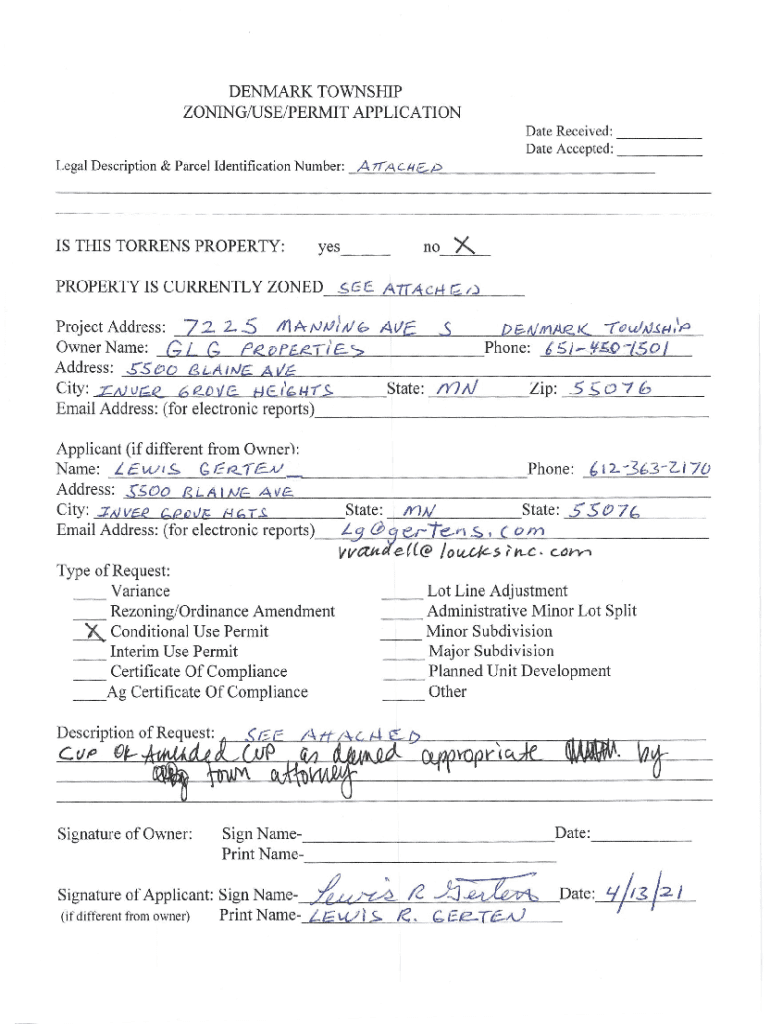 DENMARK TOWNSHIP
ZONING/USE/PERMIT APPLICATION
Date Received: __________
Date Accepted: __________
Legal Description & Parcel Identification Number: ATTACHED
IS THIS TORRENS PROPERTY: yes______ no__X__
PROPERTY IS CURRENTLY ZONED SEE ATTACHED
Project Address: 7225 MANNING AVE S DENMARK TOWNSHIP
Owner Name: GLG PROPERTIES Phone: 651-450-1501
Address: 5500 BLAINE AVE
City: INVER GROVE HEIGHTS State: MN Zip: 55076
Email Address: (for electronic reports)
Applicant (if different from Owner):
Name: LEWIS GERTEN Phone: 612-363-2170
Address: 5500 BLAINE AVE
City: INVER GROVE HGTS State: MN State: 55076
Email Address: (for electronic reports) Lg@gertens.com
vvandell@loucksinc.com
Type of Request:
____ Variance ____ Lot Line Adjustment
____ Rezoning/Ordinance Amendment ____ Administrative Minor Lot Split
X Conditional Use Permit ____ Minor Subdivision
____ Interim Use Permit ____ Major Subdivision
____ Certificate Of Compliance ____ Planned Unit Development
____ Ag Certificate Of Compliance ____ Other
Description of Request: SEE ATTACHED
CUP or Amended CUP as deemed appropriate by
town attorney
Signature of Owner: Sign Name-__________ Date:__________
Print Name-__________
Signature of Applicant: Sign Name- Lewis R Gerten Date: 4/13/21
(if different from owner) Print Name- LEWIS R. GERTEN